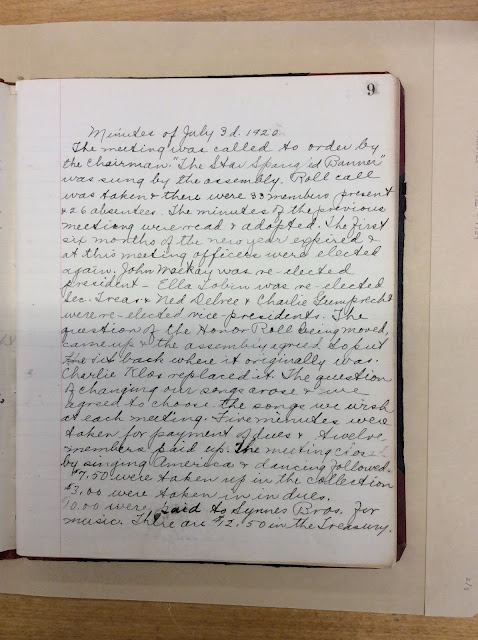 9
Minutes of July 3d. 1920
The meeting was called to order by
the Chairman. "The Star Spang'ed Banner"
was sung by the assembly. Roll call
was taken & there were 33 members present
& 26 absentees. The minutes of the previous
meeting were read & adopted. The first
six months of the new year expired &
at this meeting officers were elected
again. John Mackay was re-elected
president - Ella Tobin was re-elected
Sec. Treas & Ned Debree & Charlie Gumprecht
were re-elected vice-presidents. The
question of the Honor Roll being moved,
came up & the assembly agreed to put
it back where it originally was.
Charlie Klos replaced it. The question
of changing our songs arose & we
agreed to choose the songs we wish
at each meeting. Five minutes were
taken for payment of dues & twelve
members paid up. The meeting closed
by singing America & dancing followed.
$7.50 were taken up in the collection
$3.00 were taken in in dues.
10.00 were paid to Synnes Bros. for
music. There are $12.50 in the Treasury.